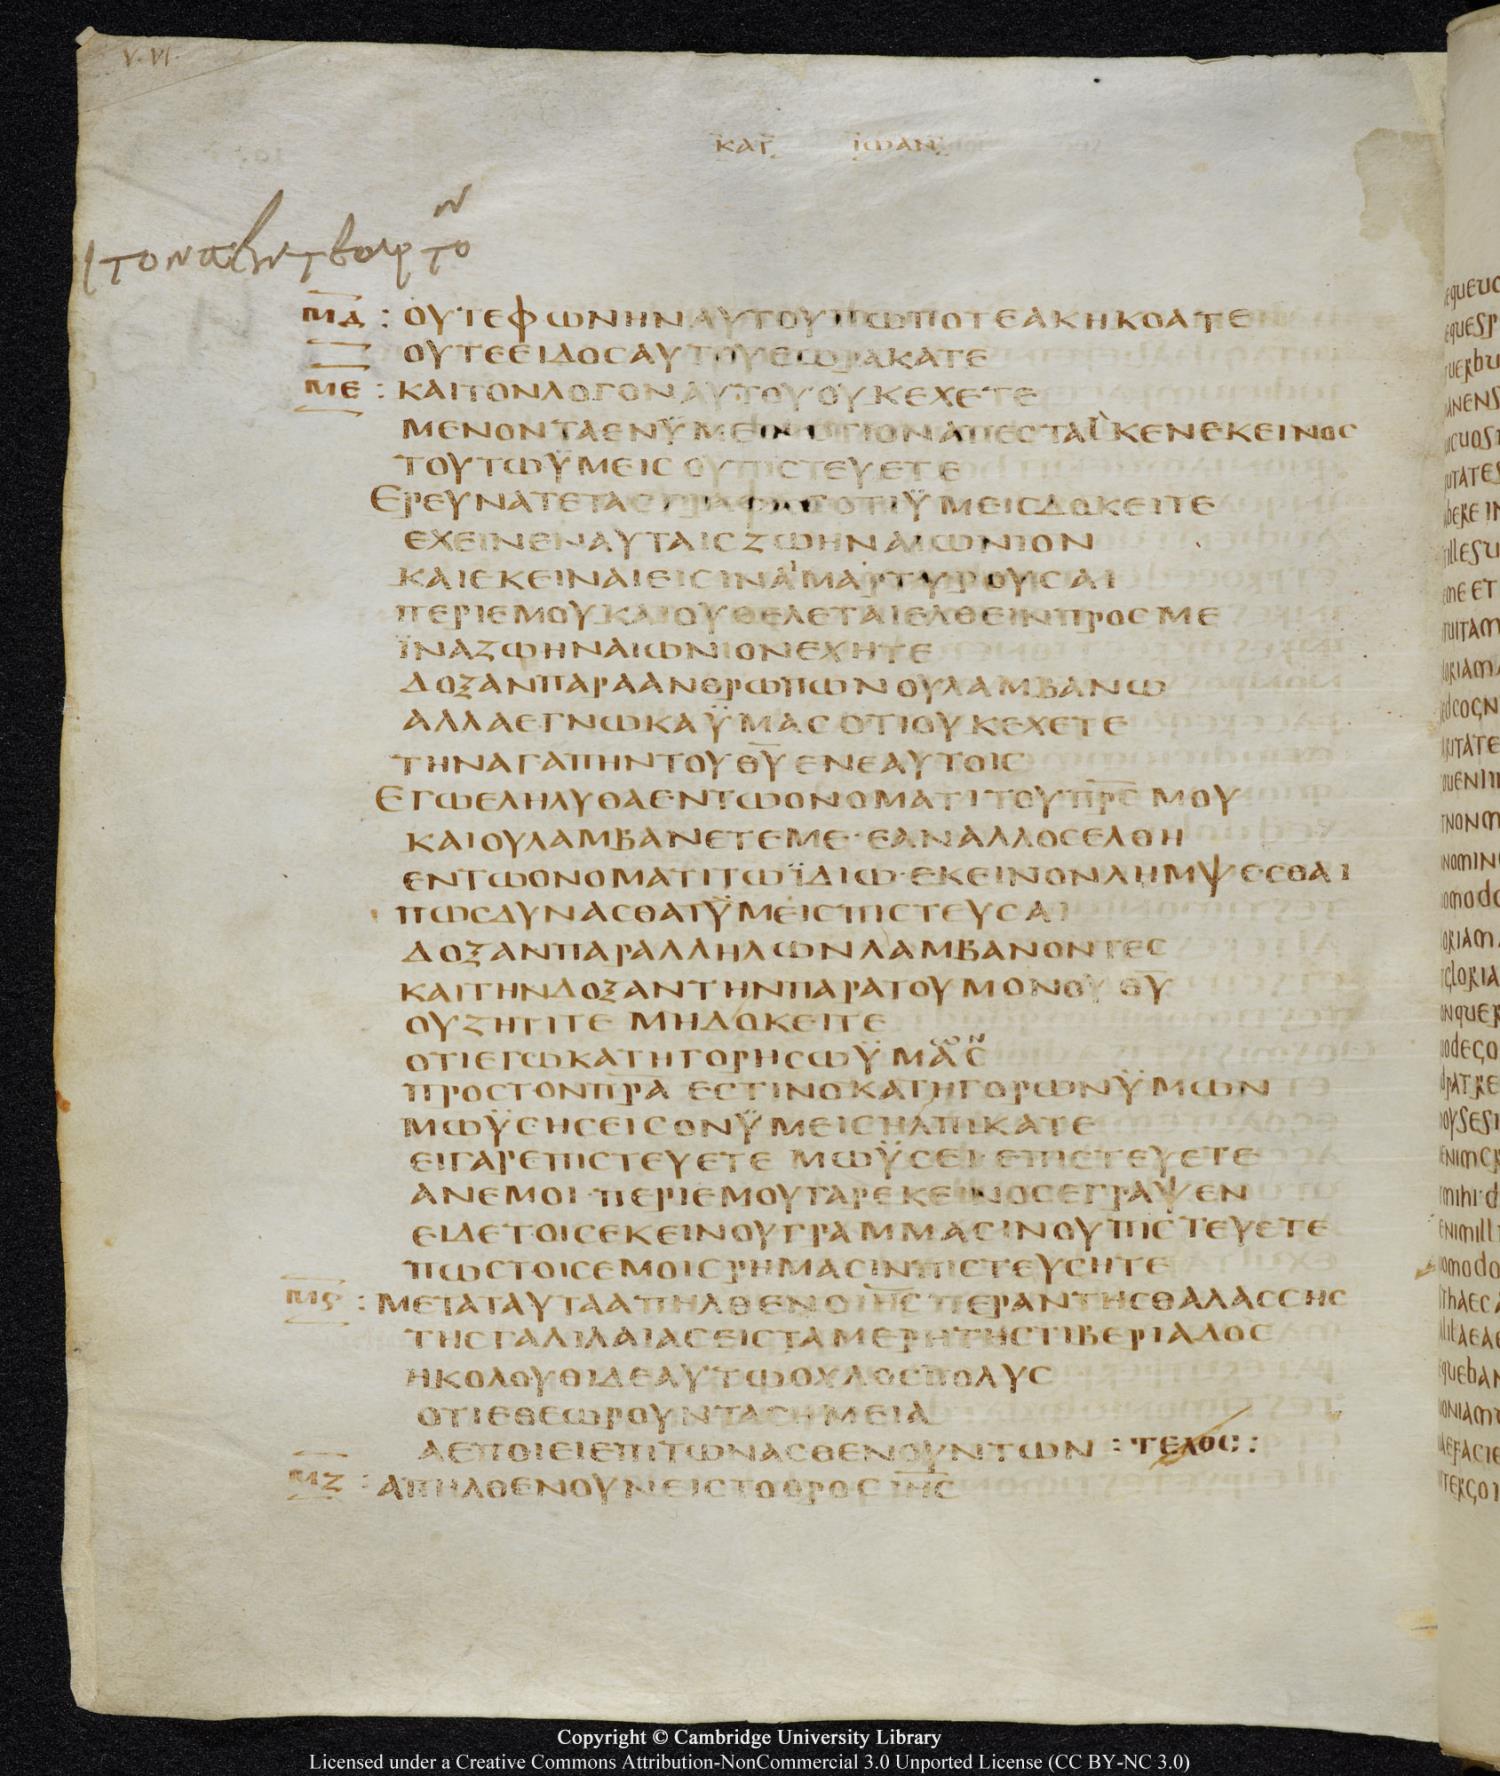 V·VI·
ΚΑΤ ΙΩΑΝ
ΜΔ : ΟΥΤΕΦΩΝΗΝΑΥΤΟΥΠΩΠΟΤΕΑΚΗΚΟΑΤΕ
ΟΥΤΕΕΙΔΟCΑΥΤΟΥΕΩΡΑΚΑΤΕ
ΜΕ : ΚΑΙΤΟΝΛΟΓΟΝΑΥΤΟΥΟΥΚΕΧΕΤΕ
ΜΕΝΟΝΤΑΕΝΫΜΕΙΝΟΤΙΟΝΑΠΕCΤΑΙΛΚΕΝΕΚΕΙΝΟC
ΤΟΥΤΩΫΜΕΙCΟΥΠΙCΤΕΥΕΤΕ
ΕΡΕΥΝΑΤΕΤΑCΓΡΑΦΑCΟΤΙΫΜΕΙCΔΟΚΕΙΤΕ
ΕΧΕΙΝΕΝΑΥΤΑΙCΖΩΗΝΑΙΩΝΙΟΝ
ΚΑΙΕΚΕΙΝΑΙΕΙCΙΝΑΙΜΑΡΤΥΡΟΥCΑΙ
ΠΕΡΙΕΜΟΥΚΑΙΟΥΘΕΛΕΤΑΙΕΛΘΕΙΝΠΡΟCΜΕ
ΪΝΑΖΩΗΝΑΙΩΝΙΟΝΕΧΗΤΕ
ΔΟΞΑΝΠΑΡΑΑΝΘΡΩΠΩΝΟΥΛΑΜΒΑΝΩ
ΑΛΛΑΕΓΝΩΚΑΫΜΑCΟΤΙΟΥΚΕΧΕΤΕ
ΤΗΝΑΓΑΠΗΝΤΟΥΘΥ̅ΕΝΕΑΥΤΟΙC
ΕΓΩΕΛΗΛΥΘΑΕΝΤΩΟΝΟΜΑΤΙΤΟΥΠΡ̅CΜΟΥ
ΚΑΙΟΥΛΑΜΒΑΝΕΤΕΜΕ·ΕΑΝΑΛΛΟCΕΛΘΗ
ΕΝΤΩΟΝΟΜΑΤΙΤΩΪΔΙΩ·ΕΚΕΙΝΟΝΛΗΜΨΕCΘΑΙ
ΠΩCΔΥΝΑCΘΑΙΫΜΕΙCΠΙCΤΕΥCΑΙ
ΔΟΞΑΝΠΑΡΑΛΛΗΛΩΝΛΑΜΒΑΝΟΝΤΕC
ΚΑΙΤΗΝΔΟΞΑΝΤΗΝΠΑΡΑΤΟΥΜΟΝΟΥΘΥ̅
ΟΥΖΗΤΙΤΕ ΜΗΔΟΚΕΙΤΕ
ΟΤΙΕΓΩΚΑΤΗΓΟΡΗCΩΫΜΑC
ΠΡΟCΤΟΝΠΡ̅Α ΕCΤΙΝΟΚΑΤΗΓΟΡΩΝΫΜΩΝ
ΜΩΫCΗCΕΙCΟΝΫΜΕΙCΗΛΠΙΚΑΤΕ
ΕΙΓΑΡΕΠΙCΤΕΥΕΤΕ ΜΩΫCΕΙ ΕΠΙCΤΕΥΕΤΕ
ΑΝΕΜΟΙ·ΠΕΡΙΕΜΟΥΓΑΡΕΚΕΙΝΟCΕΓΡΑΨΕΝ
ΕΙΔΕΤΟΙCΕΚΕΙΝΟΥΓΡΑΜΜΑCΙΝΟΥΠΙCΤΕΥΕΤΕ
ΠΩCΤΟΙCΕΜΟΙCΡΗΜΑCΙΝΠΙCΤΕΥCΗΤΕ
ΜϚ : ΜΕΤΑΤΑΥΤΑΑΠΗΛΘΕΝΟΙΗ̅CΠΕΡΑΝΤΗCΘΑΛΑCCΗC
ΤΗCΓΑΛΙΛΑΙΑCΕΙCΤΑΜΕΡΗΤΗCΤΙΒΕΡΙΑΔΟC
ΗΚΟΛΟΥΘΙΔΕΑΥΤΩΟΧΛΟCΠΟΛΥC
ΟΤΙΕΘΕΩΡΟΥΝΤΑCΗΜΕΙΑ
ΑΕΠΟΙΕΙΕΠΙΤΩΝΑCΘΕΝΟΥΝΤΩΝ : ΤΕΛΟC :
ΜΖ : ΑΠΗΛΘΕΝΟΥΝΕΙCΤΟΟΡΟCΙΗ̅C
Copyright © Cambridge University Library
Licensed under a Creative Commons Attribution-NonCommercial 3.0 Unported License (CC BY-NC 3.0)